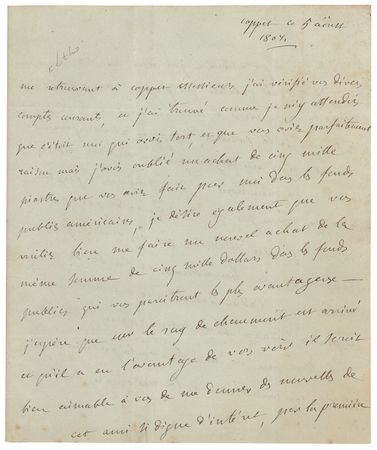 coppet ce 5 août
1807.
me retrouvant à coppet messieurs j'ai vérifié vos divers
comptes courant, et j'ai trouvé comme je m'y attendais
que c'était moi qui avois tort, et que vous aviez parfaitement
raison mais j'avois oublié un achat de cinq mille
piastres que vous aviez fait pour moi dans les fonds
publics américains, je désire également que vous
vouliez bien me faire un nouvel achat de la
même somme de cinq mille dollars dans les fonds
publics qui vous paroîtront les plus avantageux
j'espère que mr le ray de chaumont est arrivé
et qu'il a eu l'avantage de vous voir il seroit
bien aimable à vous de me donner des nouvelles de
cet ami si digne d'intérêt, par la première